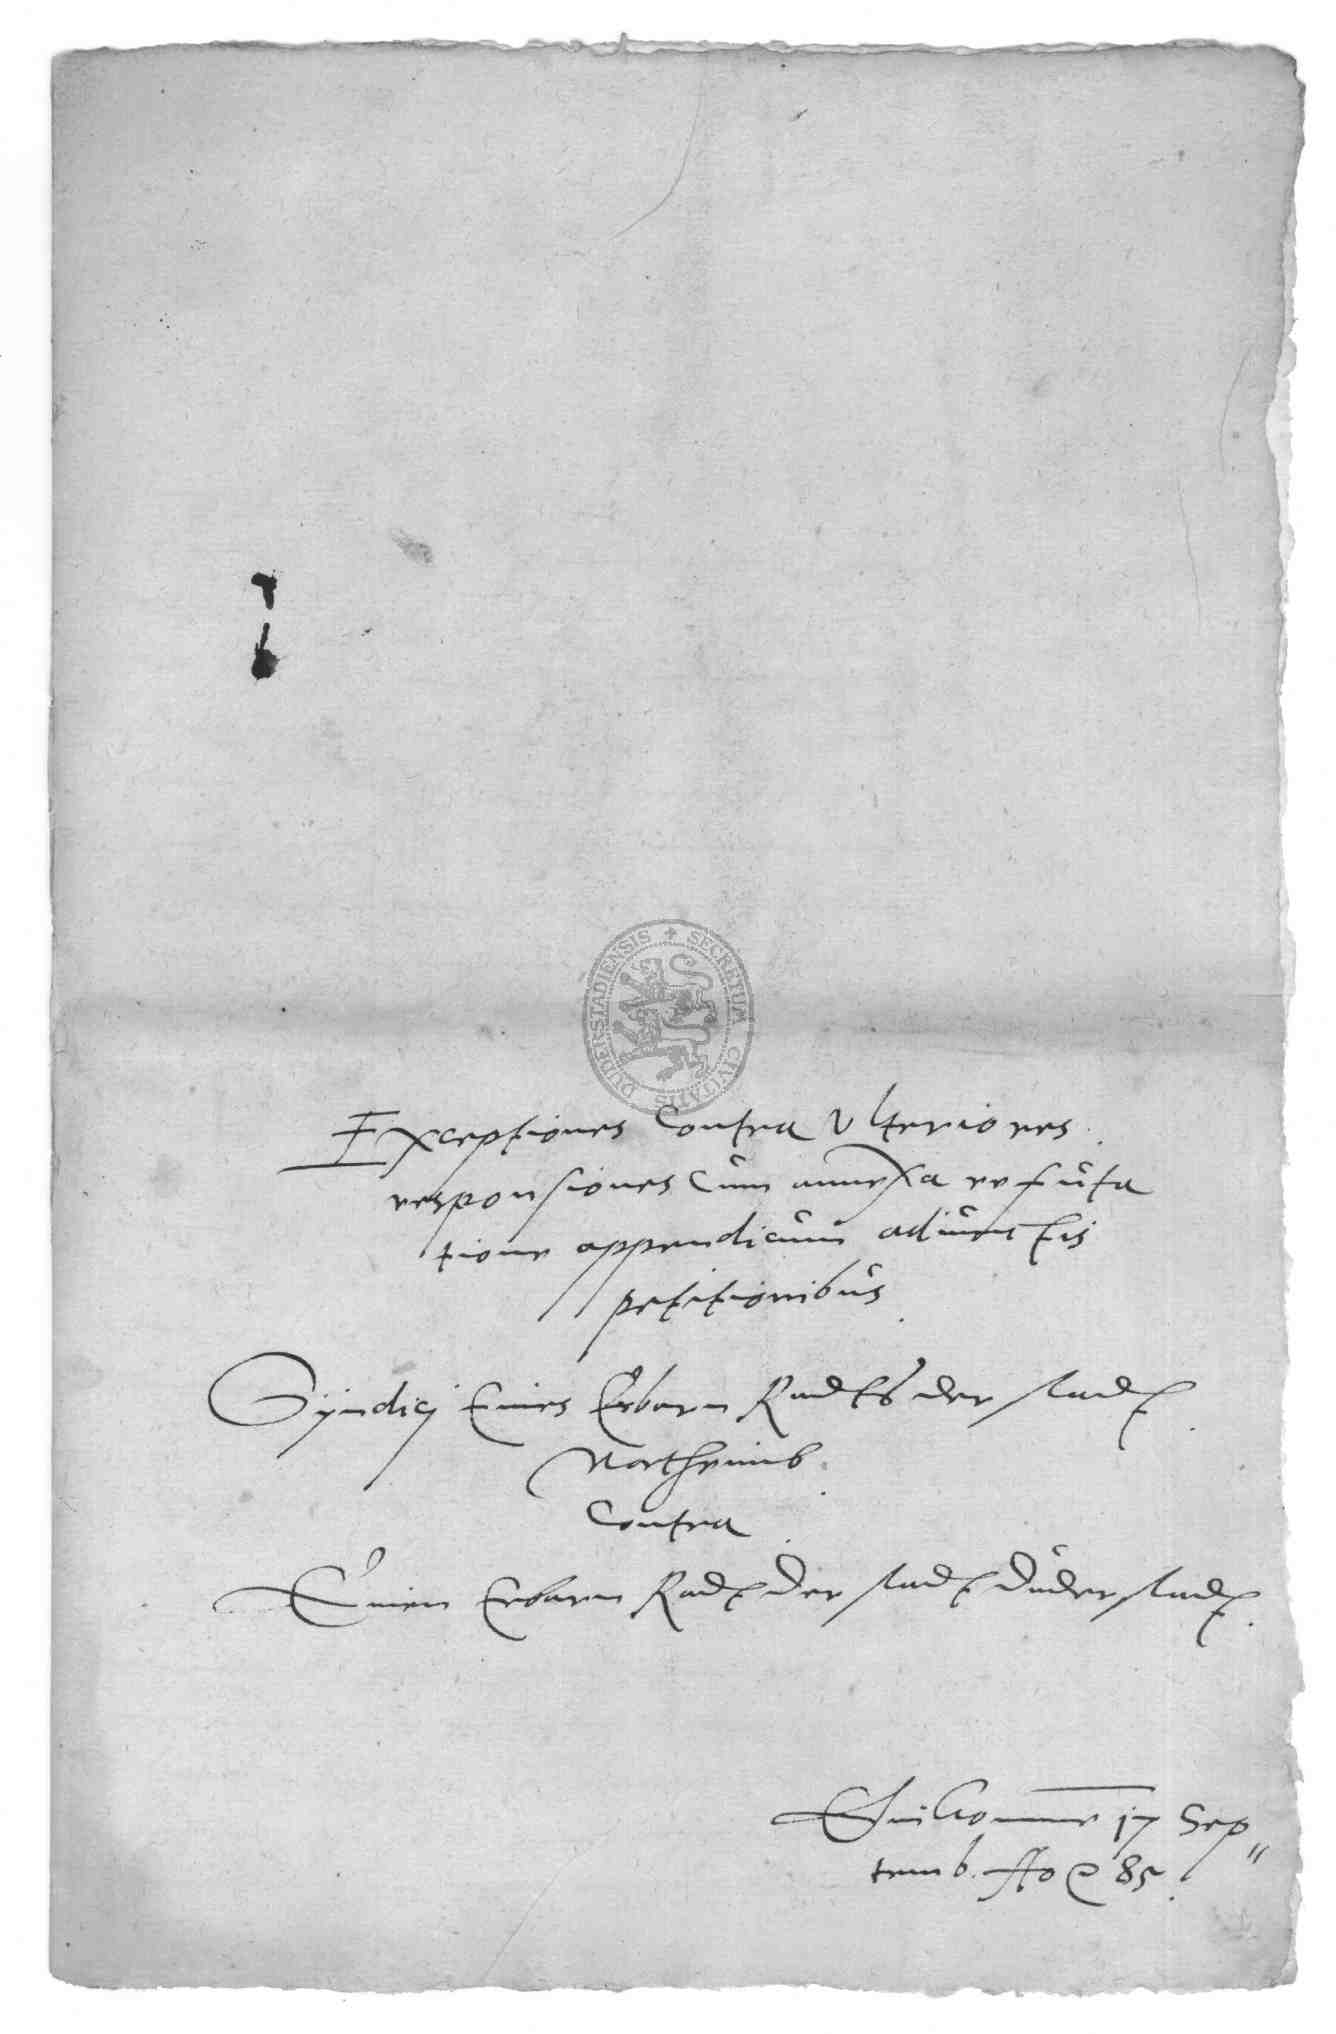 SECRETUM CIVITATIS DUDERSTADIENSIS
Exceptiones Contra Vlteriores
responsiones Cum annexa refuta
tione appendicum adiunctis
petitionibus
Syndicj Eines Erbarn Radts der stadt
Northeimb
Contra
Einen Erbarn Radt der stadt Duderstadt
Einkomme 17 Sep
temb. Ao 85